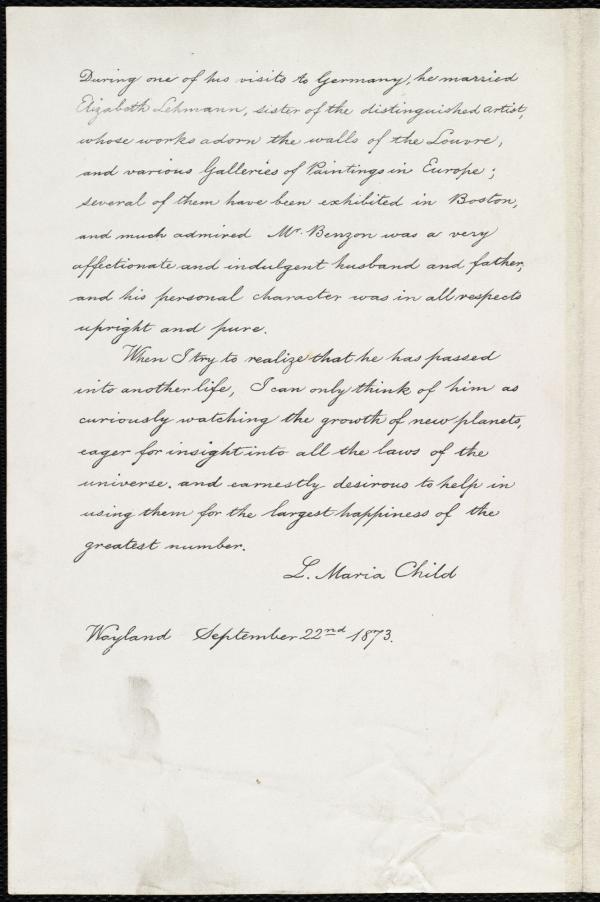 During one of his visits to Germany, he married
Elizabeth Lehmann, sister of the distinguished artist,
whose works adorn the walls of the Louvre,
and various Galleries of Paintings in Europe;
several of them have been exhibited in Boston,
and much admired Mr. Benzon was a very
affectionate and indulgent husband and father,
and his personal character was in all respects
upright and pure.
When I try to realize that he has passed
into another life, I can only think of him as
curiously watching the growth of new planets,
eager for insight into all the laws of the
universe. and earnestly desirous to help in
using them for the largest happiness of the
greatest number.
L. Maria Child
Wayland September 22nd 1873.